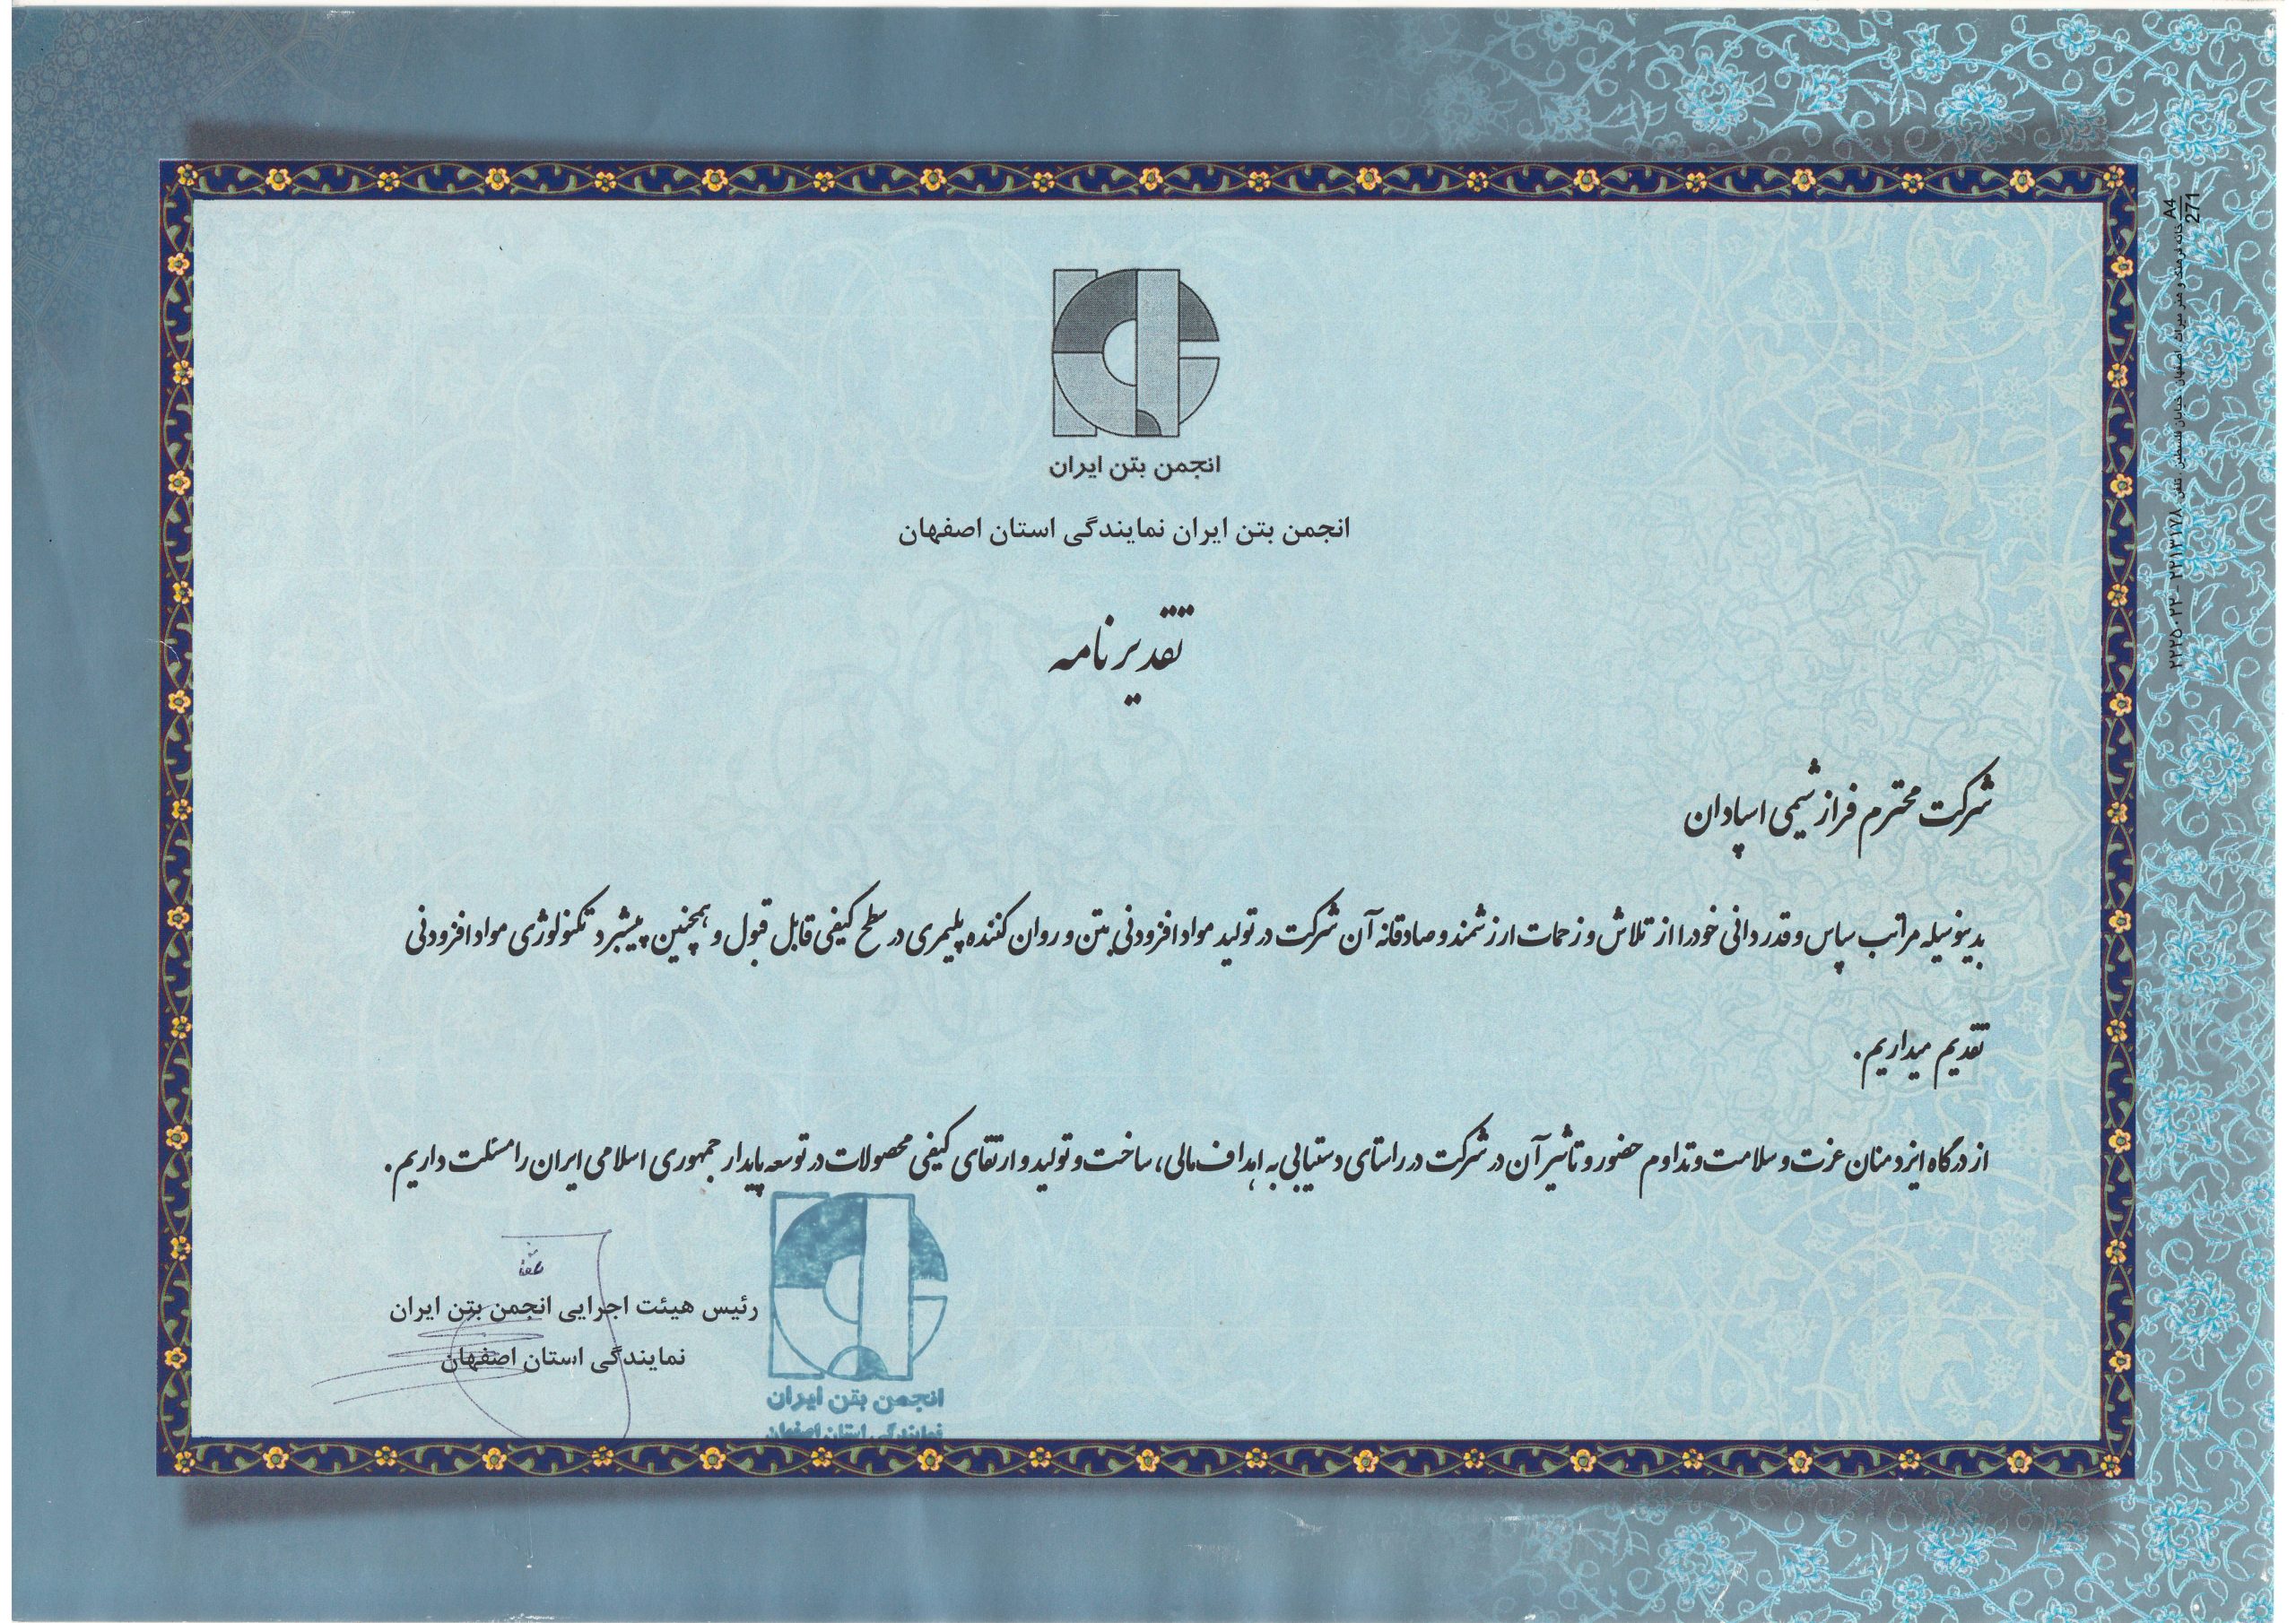 انجمن بتن ایران
انجمن بتن ایران نمایندگی استان اصفهان
تقدیرنامه
شرکت محترم فراز شیمی اسپادان
بدینوسیله مراتب سپاس و قدردانی خود را از تلاش و زحمات ارزشمند و صادقانه آن شرکت در تولید مواد افزودنی بتن و روان کننده پلیمری در سطح کیفی قابل قبول و همچنین پیشبرد تکنولوژی مواد افزودنی
تقدیم میداریم.
از درگاه ایزد منان عزت و سلامت و تداوم حضور و تاثیر آن در شرکت در راستای دستیابی به اهداف مالی، ساخت و تولید و ارتقای کیفی محصولات در توسعه پایدار جمهوری اسلامی ایران را مسئلت داریم.
رئیس هیئت اجرایی انجمن بتن ایران
نمایندگی استان اصفهان
انجمن بتن ایران
نمایندگی استان اصفهان
A4
271
خانه فرهنگ و هنر میراث اصفهان خیابان فلسطین تلفن: ۲۲۱۳۱۷۸ - ۲۲۲۵۰۲۲